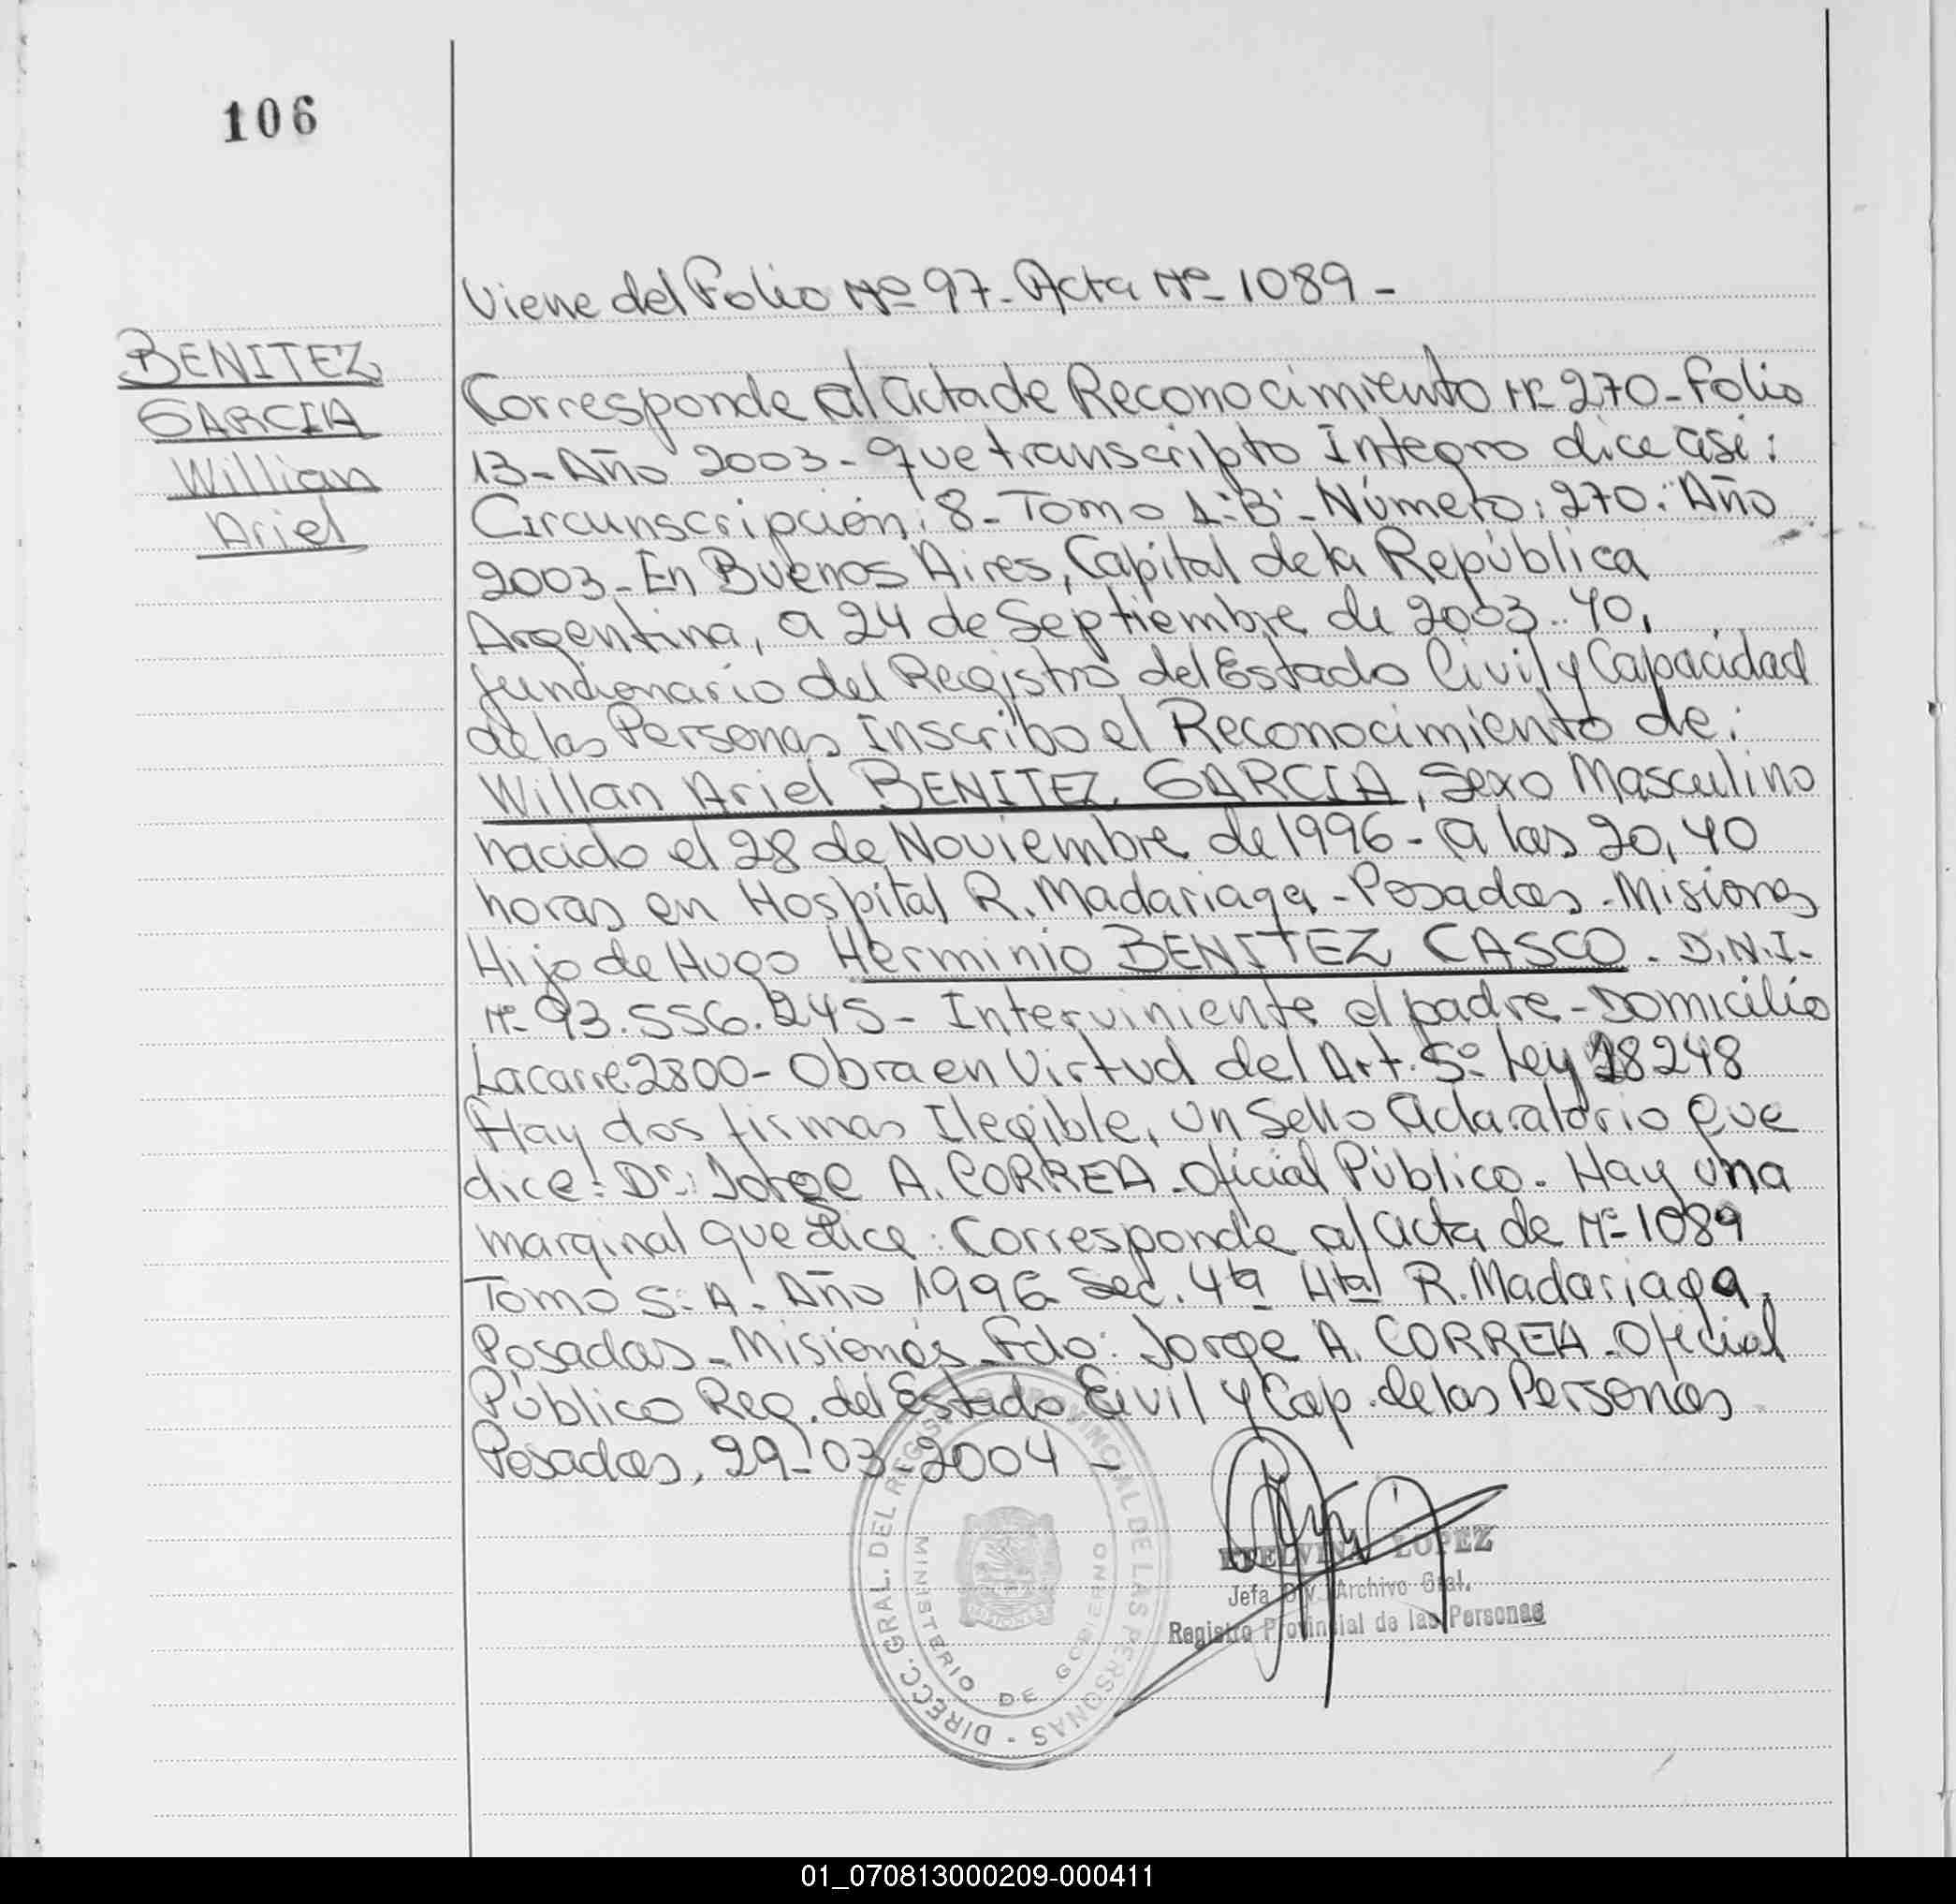 106
Viene del Folio Nº 97- Acta Nº 1089-
BENITEZ
GARCIA
Willian
Ariel
Corresponde al acta de Reconocimiento Nº 270- Folio
13- Año 2003- que transcripto Integro dice asi:
Circunscripción: 8- Tomo 1·B·- Número: 270: Año
2003- En Buenos Aires, Capítal de la República
Argentina, a 24 de Septiembre de 2003.. YO,
funcionario del Registro del Estado Civil y Capacidad
de las Personas Inscribo el Reconocimiento de:
Willan Ariel BENITEZ GARCIA, Sexo Masculino
nacido el 28 de Noviembre de 1996- a las 20,40
horas en Hospítal R. Madariaga- Posadas- Misiones
Hijo de Hugo Herminio BENITEZ CASCO. D.N.I.
Nº 93.556.245- Interviniente el padre- Domicilio
Lacarre 2800- Obra en Virtud del Art. 5º Ley 18248
Hay dos firmas Ilegible, Un Sello Aclaratorio Que
dice: Dr: Jorge A. CORREA- Oficial Público- Hay una
marginal que dice: Corresponde al acta de Nº 1089
Tomo 5·A· Año 1996 Sec. 4ta Htal R. Madariaga,
Posadas- Misiones Fdo: Jorge A. CORREA- Oficial
Público Reg. del Estado Civil y Cap. de las Personas
Posadas, 29-03-2004-
DIRECC. GRAL. DEL REGISTRO PROVINCIAL DE LAS PERSONAS -
MINISTERIO DE GOBIERNO
MISIONES
LOPEZ
Jefa Div. Archivo Gral.
Registro Provincial de las Personas
01_070813000209-000411